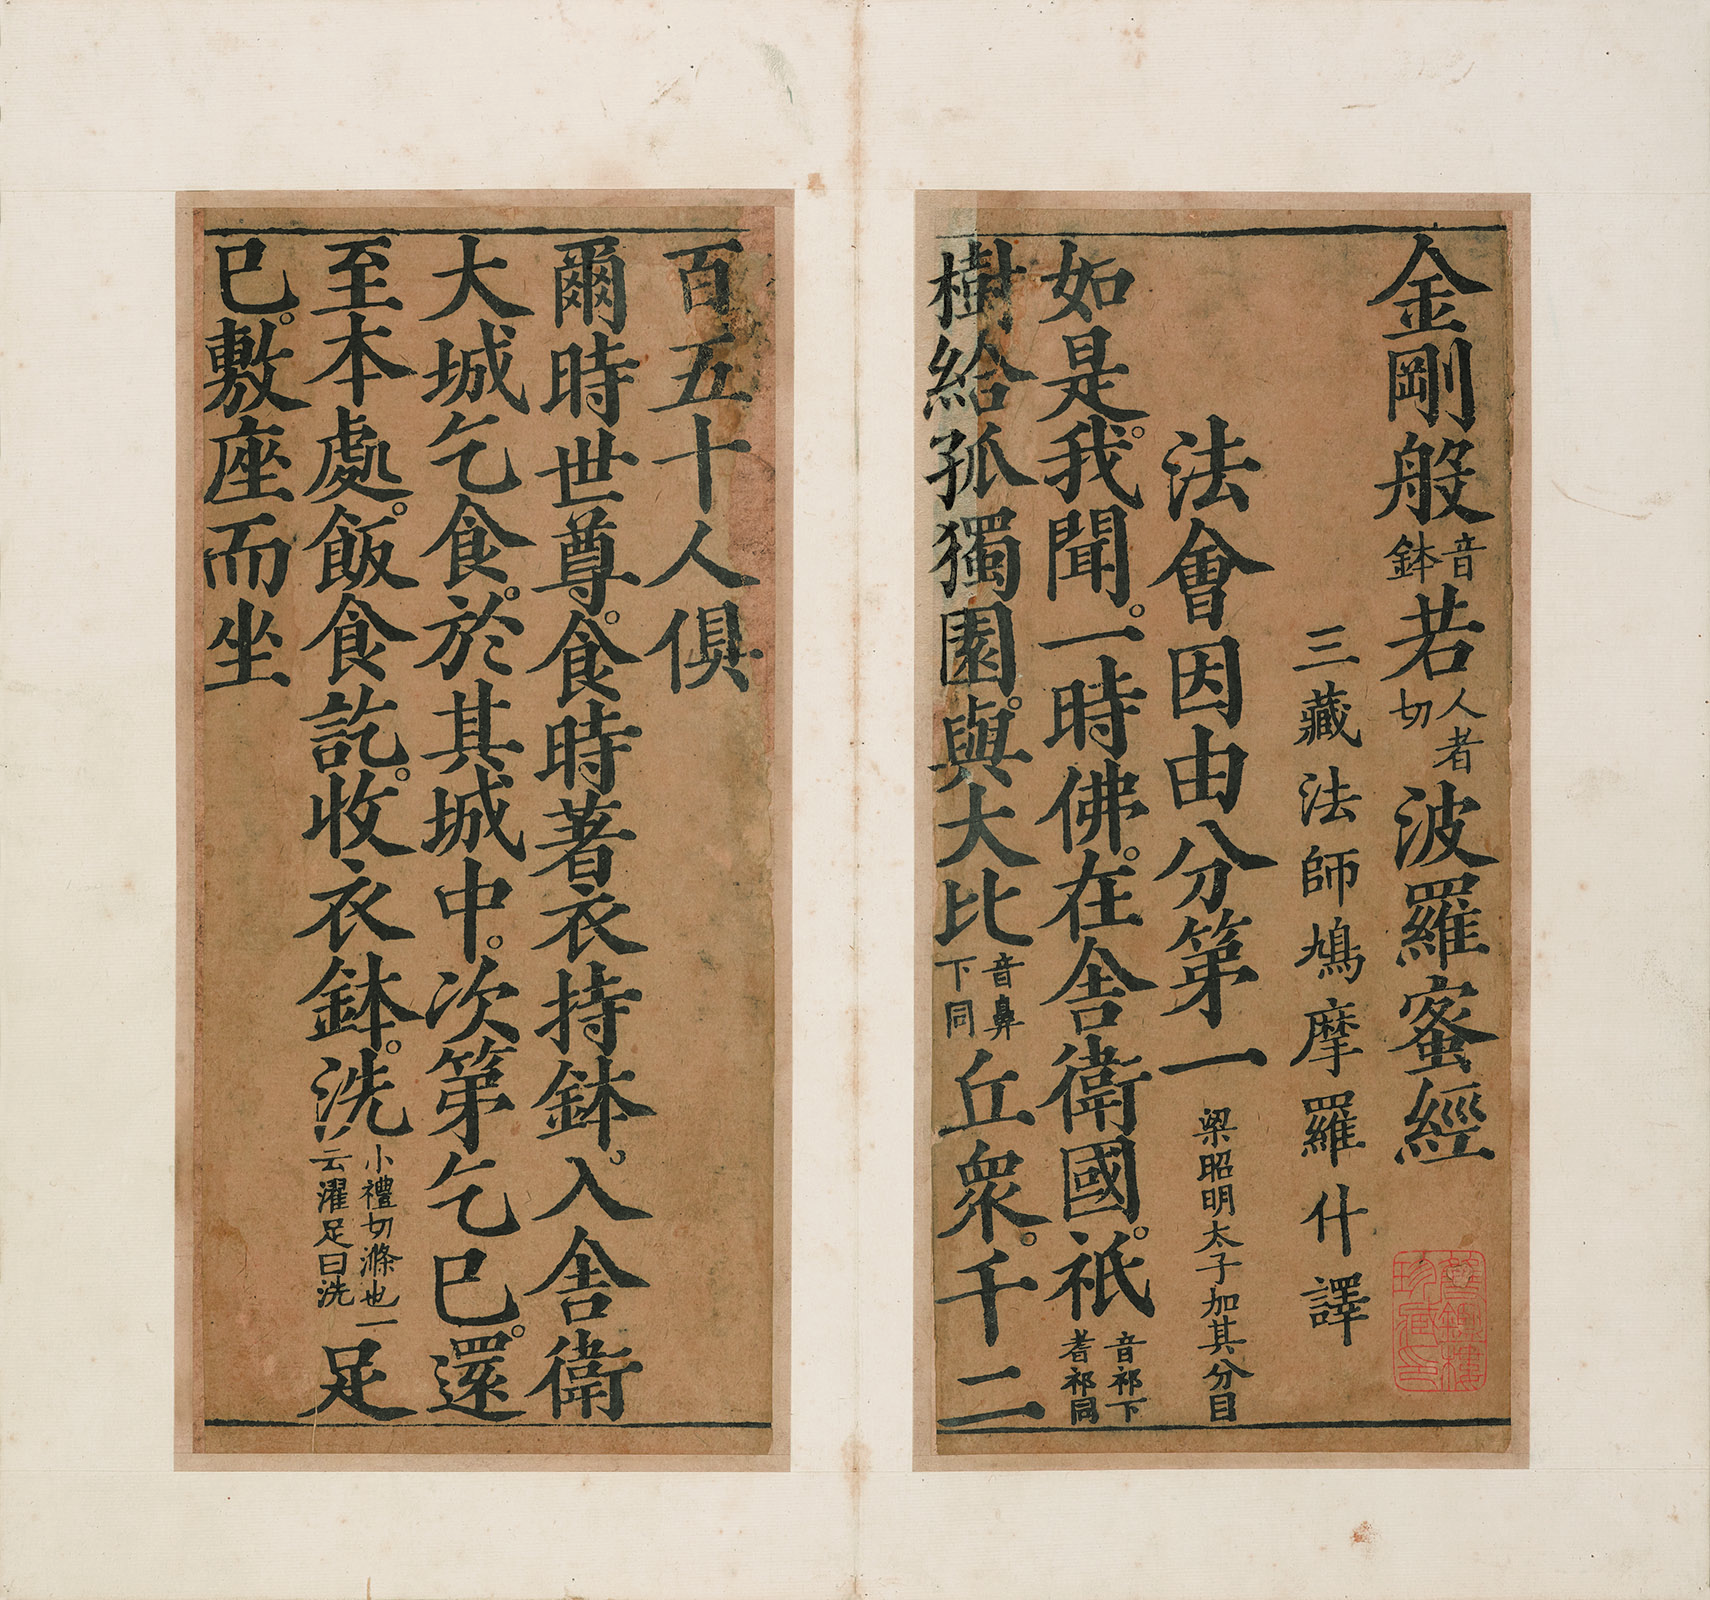 金剛般音鉢若人者切波羅蜜經
三藏法師鳩摩羅什譯
法會因由分第一梁昭明太子加其分目
如是。我聞。一時佛。在舍衛國。祇音祁下耆祁同
樹給孤獨園。與大比音鼻下同丘衆。千二
百五十人俱
爾時世尊。食時著衣持鉢。入舍衛
大城乞食。於其城中。次第乞已。還
至本處。飯食訖。收衣鉢。洗小禮切滌也一云濯足曰洗足
已。敷座而坐